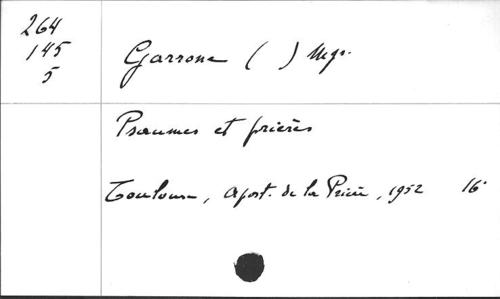 264
145
5
Garrone ( ) Mgr.
Psaumes et prières
Toulouse, Apost. de la Prière, 1952 16°